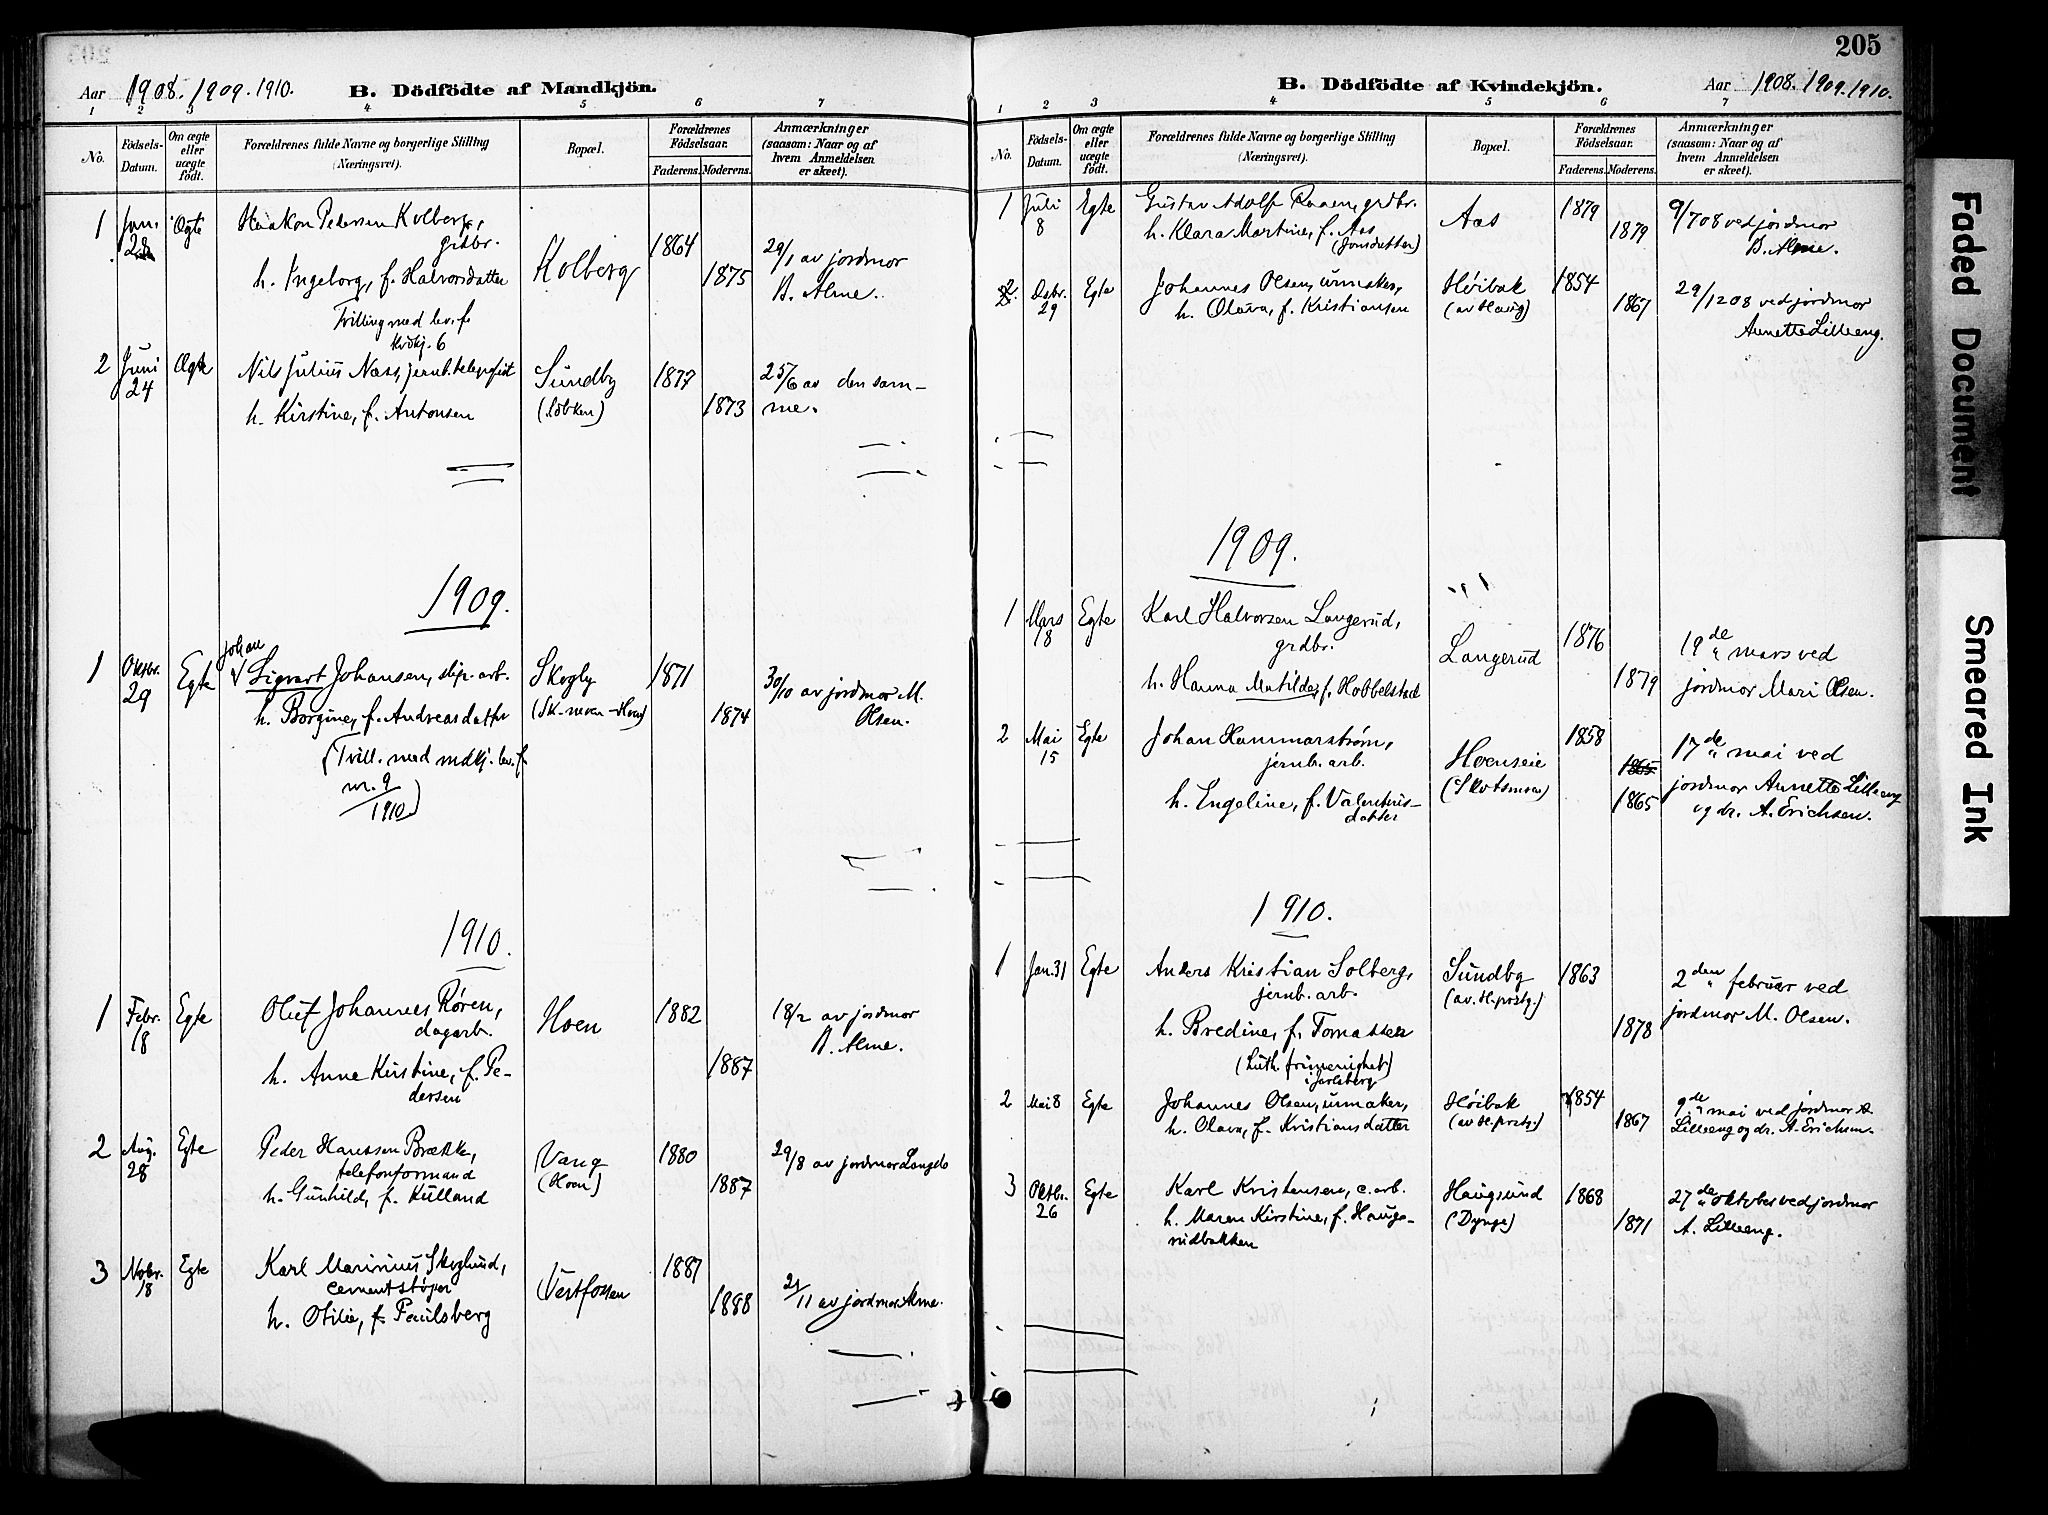 Aar 1908. 1909. 1910. B. Dödfödte af Mandkjön.
1 2 3 4 5 6 7
No. Födsels-Datum. Om ægte eller uægte födt. Forældrenes fulde Navne og borgerlige Stilling (Næringsvei). Bopæl. Forældrenes Födselsaar. Faderens. Moderens. Anmærkninger (saasom: Naar og af hvem Anmeldelsen er skeet).
1 Jan. 28 Haakon Pedersen Kolberg,
grdbr.
h. Ingeborg, f. Halvorsdatter Kolberg 1864 1875 29/1 av jordmor
B. Alme.
Tvilling med lev. f.
kvkj. 6
2 Juni 24 Nils Julius Næss, jernb.
h. Kirstine, f. Antonsen
Sundby 1877 1873 25/6 av den sam-
me.
1909.
1 Oktbr. 29 Egte Johan
Sigvart Johansen, slip. arb. Skogly 1871 30/10 av jordmor M.
h. Borgine, f. Andreasdatter 1874 Olsen.
(Tvill. med mdkj. lev. f.
nr. 9
1910)
1910.
1 Febr. 18 Egte Oluf Johannes Røren, Hoen 1882 18/2 av jordmor
dagarb. B. Alme.
h. Anne Kirstine, f. Pe- 1887
dersen
2 Aug. 28 Egte Peder Hanssen Brække, Vang 1880 29/8 av jordmor
telefonformand (Hoen)
h. Gunhild, f. Kulland 1887
3 Novbr. 18 Egte Karl Marinius Skoglund, Vestfossen 1887
cementstøper
h. Otilie, f. Paulsberg 1888 21/11 av jordmor Alme.
205
B. Dödfödte af Kvindekjön. Aar 1908. 1909. 1910.
1 2 3 4 5 6 7
No. Födsels-Datum. Om ægte eller uægte födt. Forældrenes fulde Navne og borgerlige Stilling (Næringsvei). Bopæl. Forældrenes Födselsaar. Faderens. Moderens. Anmærkninger (saasom: Naar og af hvem Anmeldelsen er skeet).
1 Juli 8 Egte Gustav Adolf Raaen, grdbr. Aas 1879 9/7 08 ved jordmor
h. Klara Martine, f. Aas 1879 B. Alme.
(Jonsdatter)
2. Dsbr. 29 Egte Johannes Olsen, urmaker, Høibak 1854 29/12 08 ved jordmor
h. Olava, f. Kristiansen (av Haug) 1867 Annette Lilleeng.
1909.
1 Mars 18 Egte Karl Halvorsen Langerud, Langerud 1876 19de mars ved
grdbr.
h. Hanna Matilde, f. Hobbelstad 1879 jordmor Mari Olsen.
2 Mai 15 Egte Johan Hammarstrøm, Hoenseie 1858 17de mai ved
jernb. arb. (Skotsmoen) 1865 jordmor Annette Lilleeng
h. Engeline, f. Valentins- 1865 og dr. A. Erichsen.
datter
1910.
1 Jan. 31 Egte Anders Kristian Solberg, Sundby 1863 2den februar ved
jernb. arb. (av H. prstg.) jordmor M. Olsen.
h. Bredine, f. Tomassen 1878
(Luth. frimenighet)
i Jarlsberg
2 Mai 8 Egte Johannes Olsen, urmaker, Høibak 1854 9de mai ved jordmor A.
h. Olava, f. Kristiansdatter (av H. prstg.) 1867 Lilleeng og dr. A. Erichsen.
3 Oktbr. 26 Egte Karl Kristensen, c. arb. Haugsund 1868 27de oktober ved jordmor
h. Maren Kirstine, f. Hauge- (Dynge) 1871 A. Lilleeng.
rudbakken
Faded Document
Smeared Ink